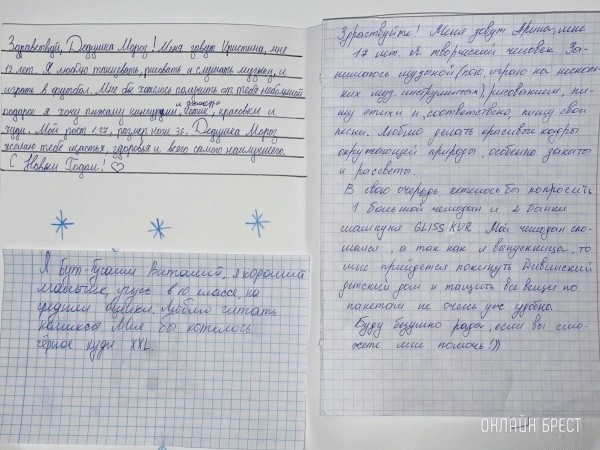 Здравствуй, Дедушка Мороз! Меня зовут Кристина, мне
12 лет. Я люблю танцевать, рисовать и слушать музыку, и
играть в футбол. Мне бы хотелось получить от тебя небольшой
подарок я хочу пижаму кигуруми, и джинсы, красовки и
худи. Мой рост 1.57, размер ноги 36. Дедушка Мороз
желаю тебе щастья, здоровья и всего самого наилучшего.
С Новым Годом! ♡
Я Бут-Гусаим Виталий, я хороший
мальчик, учусь в 10 классе, на
средние оценки. Люблю читать
комиксы. Мне бы хотелось
чёрное худи XXL
Здраствуйте! Меня зовут Арина, мне
17 лет. Я творческий человек. За-
нимаюсь музыкой (пою, играю на несколь-
ких муз. инструментах), рисованием, пи-
шу стихи и, соответственно, пишу свои
песни. Люблю делать красивые кадры
окружающей природы, особенно закаты
и рассветы.
В свою очередь хотелось бы попросить
1 большой чемодан и 2 банки
шампуня GLISS KUR. Мой чемодан сло-
мался, а так как я выпускница, то
мне прийдется покинуть Дивинский
детский дом и тащить все вещи по
пакетам не очень уж удобно.
Буду безумно рада, если вы смо-
жете мне помочь!))
ОНЛАЙН БРЕСТ